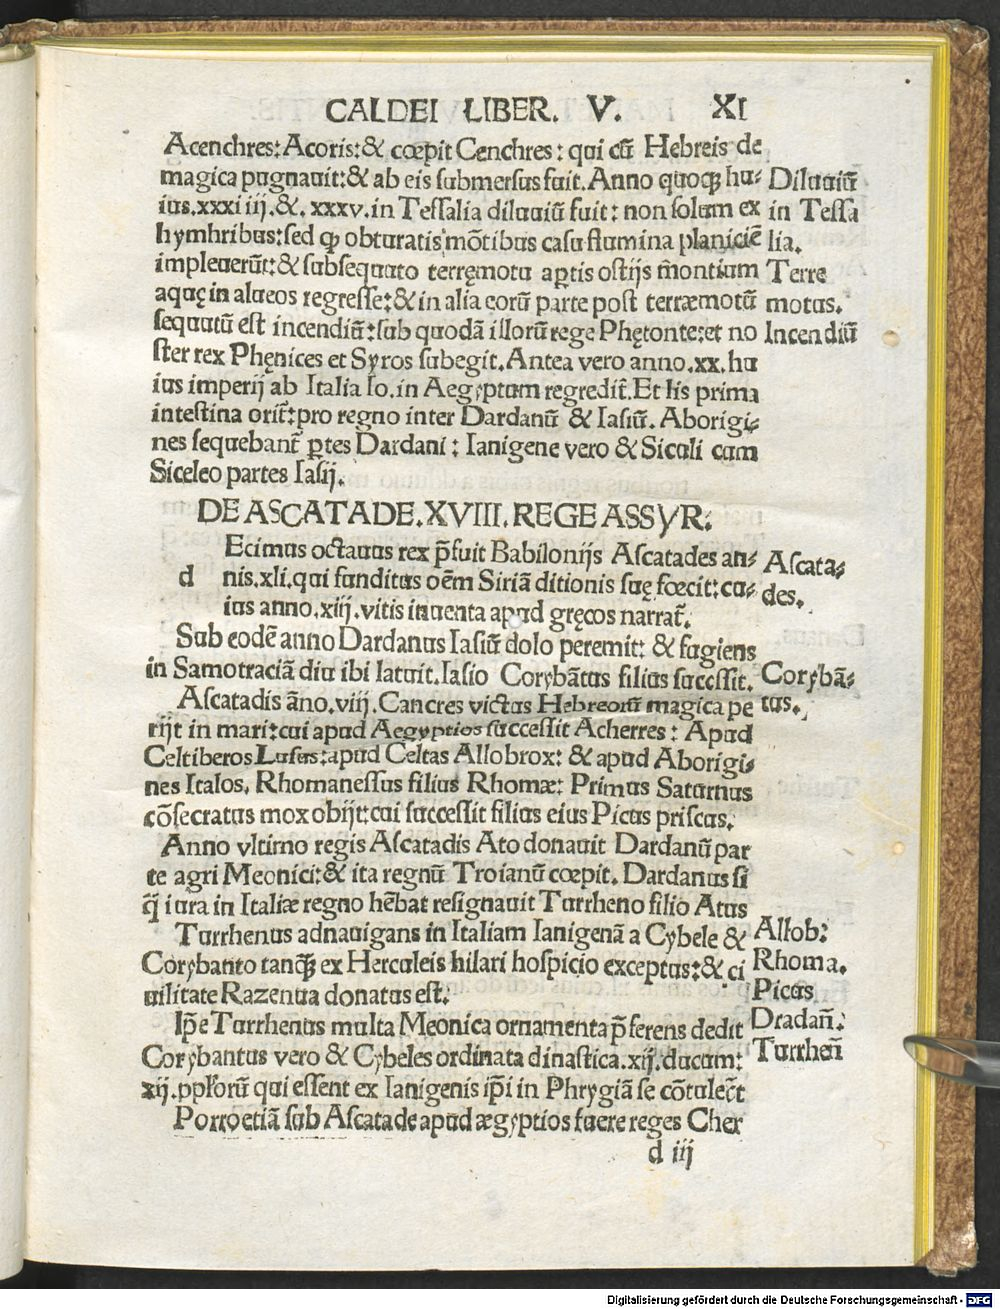 CALDEI LIBER. V. XI
Acenchres: Acoris: & cœpit Cenchres: qui cū Hebreis de
magica pugnauit: & ab eis submersus fuit. Anno quoqꝫ hu-
ius .xxxiiij. &. xxxv. in Tessalia diluuiū fuit: non solum ex
hymbribus: sed ꝙ obturatis mōtibus casu flumina planiciē
impleuerūt: & subsequuto terręmotu aꝑtis ostijs mōntium
aquę in alueos regresse: & in alia eorū parte post terræmotū
sequutū est incendiū: sub quodā illorū rege Phętonte: et no
ster rex Phęnices et Syros subegit. Antea vero anno .xx. hu
ius imperij ab Italia Io. in Aegyptum regredit̄. Et lis prima
intestina orit̄: pro regno inter Dardanū & Iasiū. Aborigi-
nes sequebant̄ ꝑtes Dardani: Ianigene vero & Siculi cum
Siceleo partes Iasij.
Diluuiū
in Tessa
lia.
Terre
motus.
Incendiū
DE ASCATADE. XVIII. REGE ASSYR:
d Ecimus octauus rex p̄fuit Babilonijs Ascatades an-
nis .xli. qui funditus oēm Siriā ditionis suę fœcit: cu-
ius anno .xiij. vitis inuenta apud gręcos narrat̄.
Sub eodē anno Dardanus Iasiū dolo peremit: & fugiens
in Samotraciā diu ibi latuit. Iasio Corybātus filius successit.
Ascatadis āno .viij. Cancres victus Hebreorū magica pe
rijt in mari: cui apud Aegyptios successit Acherres: Apud
Celtiberos Lusus: apud Celtas Allobrox: & apud Aborigi-
nes Italos, Rhomanessus filius Rhomæ: Primus Saturnus
cōsecratus mox obijt: cui successit filius eius Picus priscus.
Anno vltimo regis Ascatadis Ato donauit Dardanū par
te agri Meonici: & ita regnū Troianū cœpit. Dardanus si
q̄ iura in Italiæ regno hēbat resignauit Turrheno filio Atus
Turrhenus adnauigans in Italiam Ianigenā a Cybele &
Corybanto tanqꝫ ex Herculeis hilari hospicio exceptus: & ci
uilitate Razenua donatus est.
Ip̄e Turrhenus multa Meonica ornamenta p̄ferens dedit
Corybantus vero & Cybeles ordinata dinastica .xij. ducum:
xij. pplorū qui essent ex Ianigenis ip̄i in Phrygiā se cōtulec̄t
Porro etiā sub Ascatade apud ægyptios fuere reges Cher
Ascata-
des.
Corybā-
tus.
Allob:
Rhoma.
Picus
Dradañ.
Turrheñ
d iij
Digitalisierung gefördert durch die Deutsche Forschungsgemeinschaft - DFG